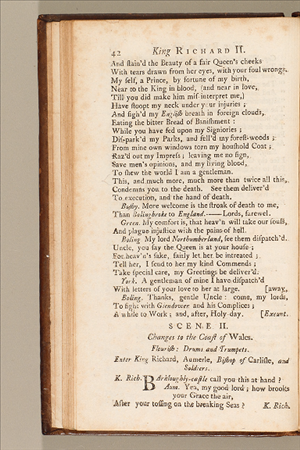 42 King RICHARD II.
And stain'd the Beauty of a fair Queen's cheeks
With tears drawn from her eyes, with your foul wrongs.
My self, a Prince, by fortune of my birth,
Near to the King in blood, (and near in love,
Till you did make him mis-interpret me,)
Have stoopt my neck under your injuries;
And sigh'd my English breath in foreign clouds,
Eating the bitter Bread of Banishment:
While you have fed upon my Signiories;
Dis-park'd my Parks, and fell'd my forest-woods;
From mine own windows torn my houshold Coat;
Raz'd out my Impress; leaving me no sign,
Save men's opinions, and my living blood,
To shew the world I am a gentleman.
This, and much more, much more than twice all this,
Condemns you to the death. See them deliver'd
To execution, and the hand of death.
Bushy. More welcome is the stroak of death to me,
Than Bolingbroke to England.——Lords, farewel.
Green. My comfort is, that heav'n will take our souls,
And plague injustice with the pains of hell.
Boling. My lord Northumberland, see them dispatch'd.
Uncle, you say the Queen is at your house
For heav'n's sake, fairly let her be intreated;
Tell her, I send to her my kind Commends;
Take special care, my Greetings be deliver'd.
York. A gentleman of mine I have dispatch'd
With letters of your love to her at large. [away,
Boling. Thanks, gentle Uncle: come, my lords,
To fight with Glendower and his Complices;
A while to Work; and, after, Holy-day. [Exeunt.
SCENE II.
Changes to the Coast of Wales.
Flourish: Drums and Trumpets.
Enter King Richard, Aumerle, Bishop of Carlisle, and
Soldiers.
K. Rich. Barkloughly-castle call you this at hand?
Aum. Yea, my good lord; how brooks
your Grace the air,
After your tossing on the breaking Seas?
K. Rich.